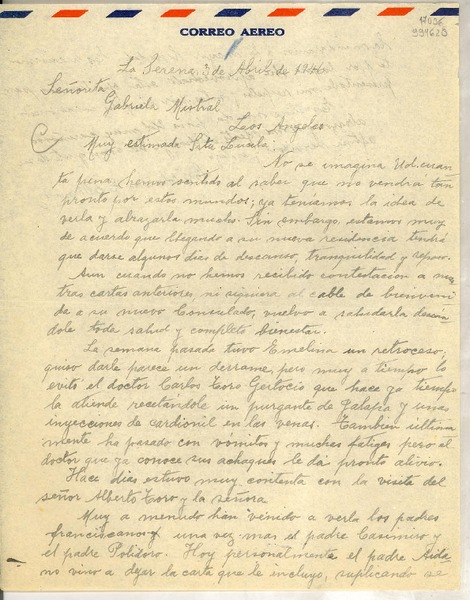 CORREO AEREO
17096
991629
La Serena, 3 de Abril de 1946
Señorita
Gabriela Mistral
Los Angeles
Muy estimada Srta Lucila:
No se imagina Ud. cuan-
ta pena hemos sentido al saber que no vendrá tan
pronto por estos mundos; ya teníamos la idea de
verla y abrazarla mucho. Sin embargo, estamos muy
de acuerdo que llegando a su nueva residencia tendrá
que darse algunos días de descanso, tranquilidad y reposo.
Aun cuando no hemos recibido contestación a nues
tras cartas anteriores, ni siquiera al cable de bienveni
da a su nuevo Consulado, vuelvo a saludarla deseán
dole toda salud y completo bienestar.
La semana pasada tuvo Emelina un retroceso;
quiso darle parece un derrame, pero muy a tiempo lo
evitó el doctor Carlos Toro que hace ya tiempo
la atiende recetándole un purgante de Jalapa y unas
inyecciones de cardionil en las venas. También última
mente ha pasado con vómitos y muchas fatigas pero el
doctor que ya conoce sus achaques le da pronto alivio.
Hace días estuvo muy contenta con la visita del
señor Alberto Toro y la señora.
Muy a menudo han venido a verla los padres
franciscanos y una vez mas el padre Casimiro y
el padre Polidoro. Hoy personalmente el padre
no vino a dejar la carta que le incluyo, suplicando se